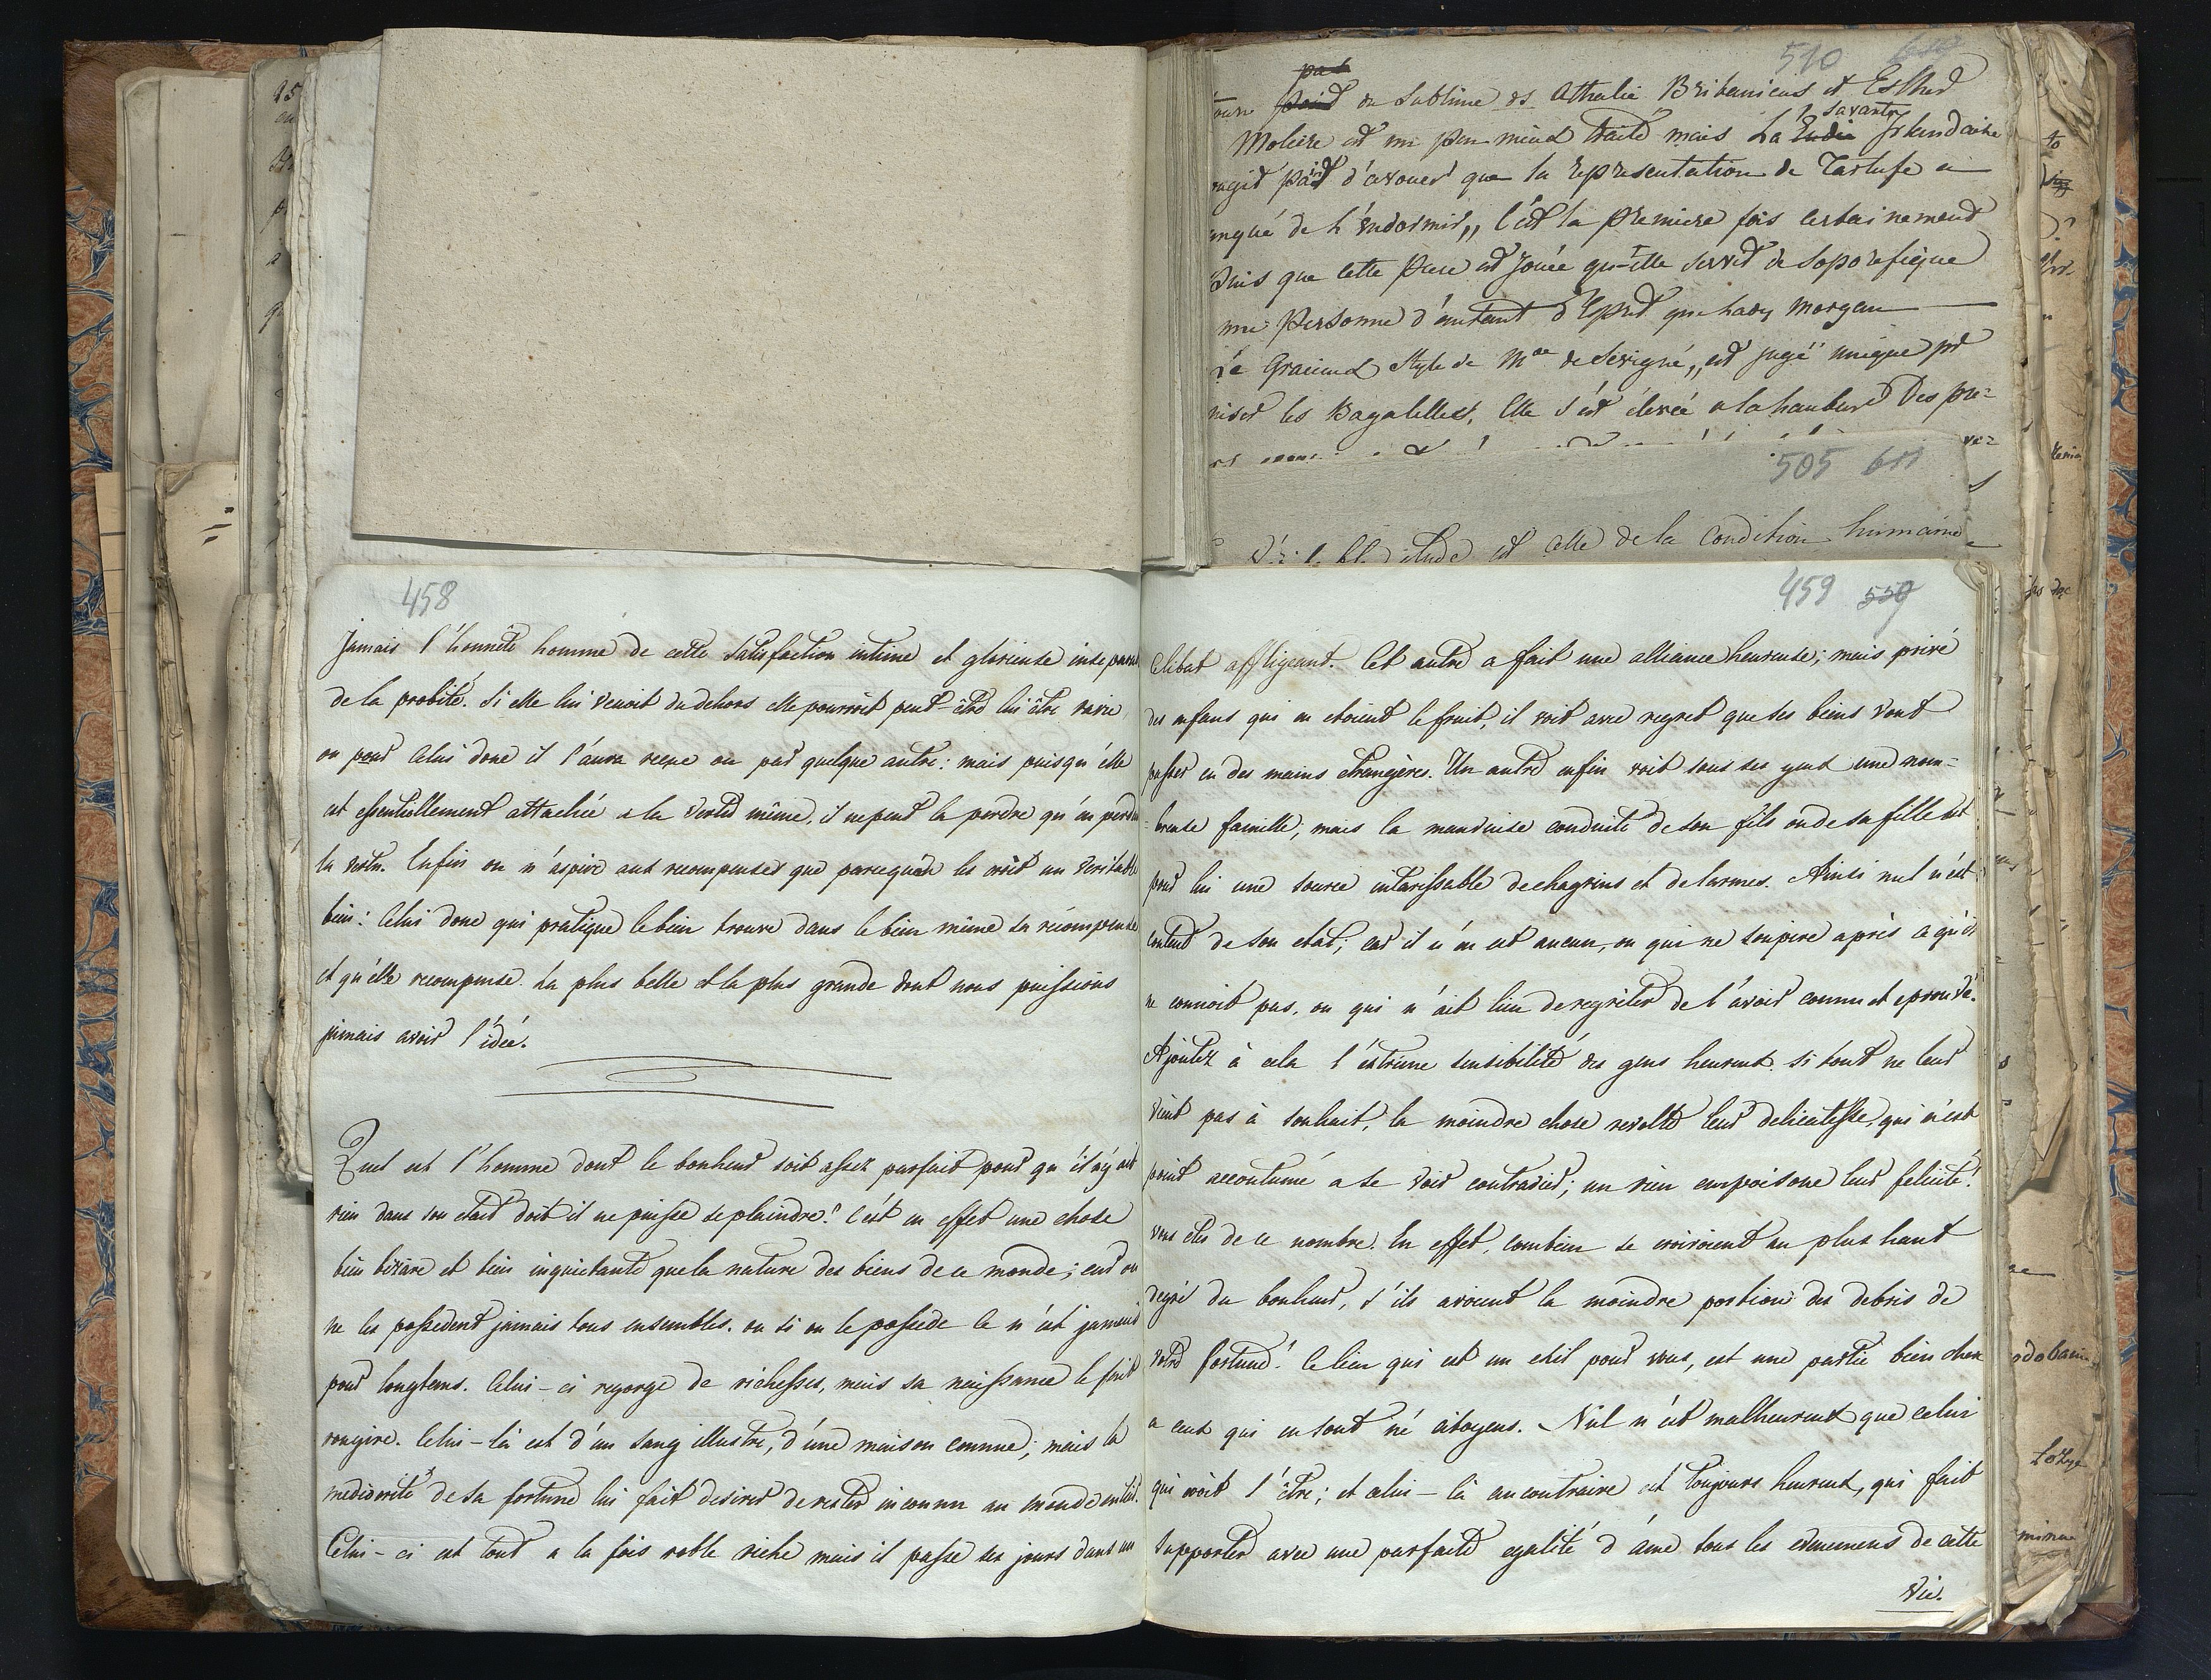 510
pas
du Sublime ds Athalie Britanicus et Esther
savante
Moliere est un peu mieux traité mais La Irlandaise
d'avouer que la representation de Tartufe a
de l'endormir,, C'est la premiere fois certainement
que cette Piece est jouée qu'elle servit de soporifique
une Personne d'autant d'Esprit que Lady Morgan
Le Gracieux Style de Mde de Sévigné,, est jugé unique pr
les Bagatelles, Elle s'est élevée a la hauteur Des pre-
505 611
est celle de la Condition humaine
458
Jamais l'honnête homme de cette satisfaction intime et glorieuse insepara
de la probité. Si elle lui venoit du dehors elle pourroit peut-être lui être ravie
ou pour celui donc il l'aura reçue ou par quelque autre: mais puisqu'elle
est essentiellement attachée a la vertu même, il ne peut la perdre qu'en perdant
la vertu. Enfin on n'aspire aux recompenses que parcequ'on les croit un veritable
bien: Celui donc qui pratique le bien trouve dans le bien même sa récompense
et qu'elle recompense. La plus belle et la plus grande dont nous puissions
jamais avoir l'idée.
Quel est l'homme dont le bonheur soit assez parfait pour qu'il n'y ait
rien dans son etait dont il ne puisse se plaindre? C'est en effet une chose
bien bizare et bien inquietante que la nature des biens de ce monde; car on
ne les possedent jamais tous ensembles. ou si on le possede ce n'est jamais
pour longtems. Celui-ci regorge de richesses, mais sa naissance le fait
rougire. Celui-là est d'un sang illustre, d'une maison connue; mais la
mediocrité de sa fortune lui fait desirer de rester inconnu au monde entier.
Celui-ci est tout a la fois noble riche mais il passe ses jours dans un
459 559
Celibat affligeant. Cet autre a fait une alliance heureuse; mais privé
des enfans qui en etoient le fruit, il voit avec regret que ses biens vont
passer en des mains etrangères. Un autre enfin voit sous ses yeux une nom-
-breuse famille; mais la mauvaise conduite de son fils ou de sa fille est
pour lui une source intarissable de chagrins et de larmes. Ainsi nul n'est
content de son etât; car il n'en est aucun, ou qui ne soupire après ce qu'il
ne connoit pas, ou qui n'ait lieu de regreter de l'avoir connu et eprouvé.
Ajoutez à cela l'extrême sensibilité des gens heureux. Si tout ne leur
vient pas à souhait, la moindre chose revolte leur delicatesse, qui n'est
point accoutumé a se voir contradier; un rien empoisone leur felicité!
vous etes de ce nombre. En effet, combien se croiroient au plus haut
degré du bonheur, s'ils avoient la moindre portion des debris de
votre fortune! Ce lieu qui est un exil pour vous, est une partie bien cher
a ceux qui en sont né citoyens. Nul n'est malheureux que celui
qui croit l'être; et celui-là au contraire est toujours heureux, qui fait
supporter avec une parfaite egalité d'âme tous les evenemens de cette
vie.